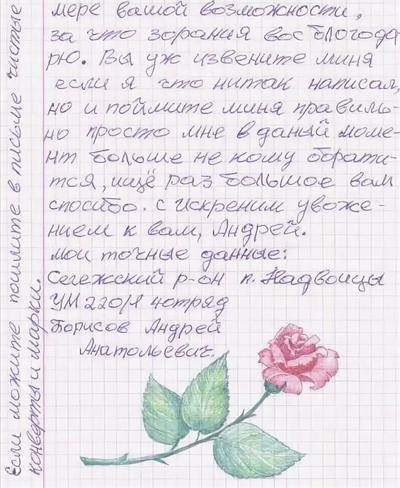 мере вашой возможности,
за что зорания вас блогода
рю. Вы уж извените миня
если я что нитак написал,
но и поймите миня правиль-
но просто мне в даный моме-
нт больше не кому обрати-
тся, ищё раз большое вам
спосибо. с искреним увоже-
нием к вам, Андрей.
мои точные данные:
Сегежский р-он п. Надвоицы
УМ 220/1 4отряд
Борисов Андрей
Анатольевич.
Если можите пошлите в письме чистые
конверты и марки.